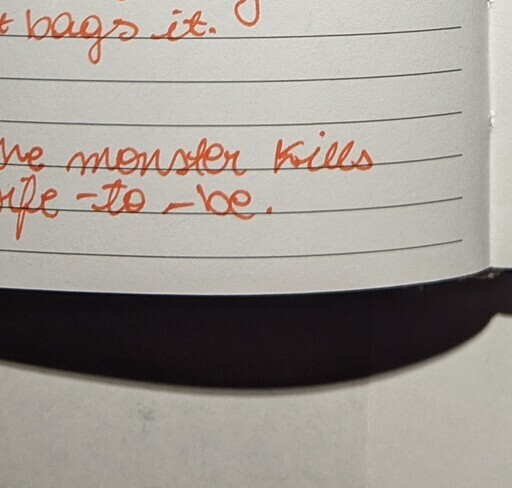 bags it.
monster kills
-to-be.